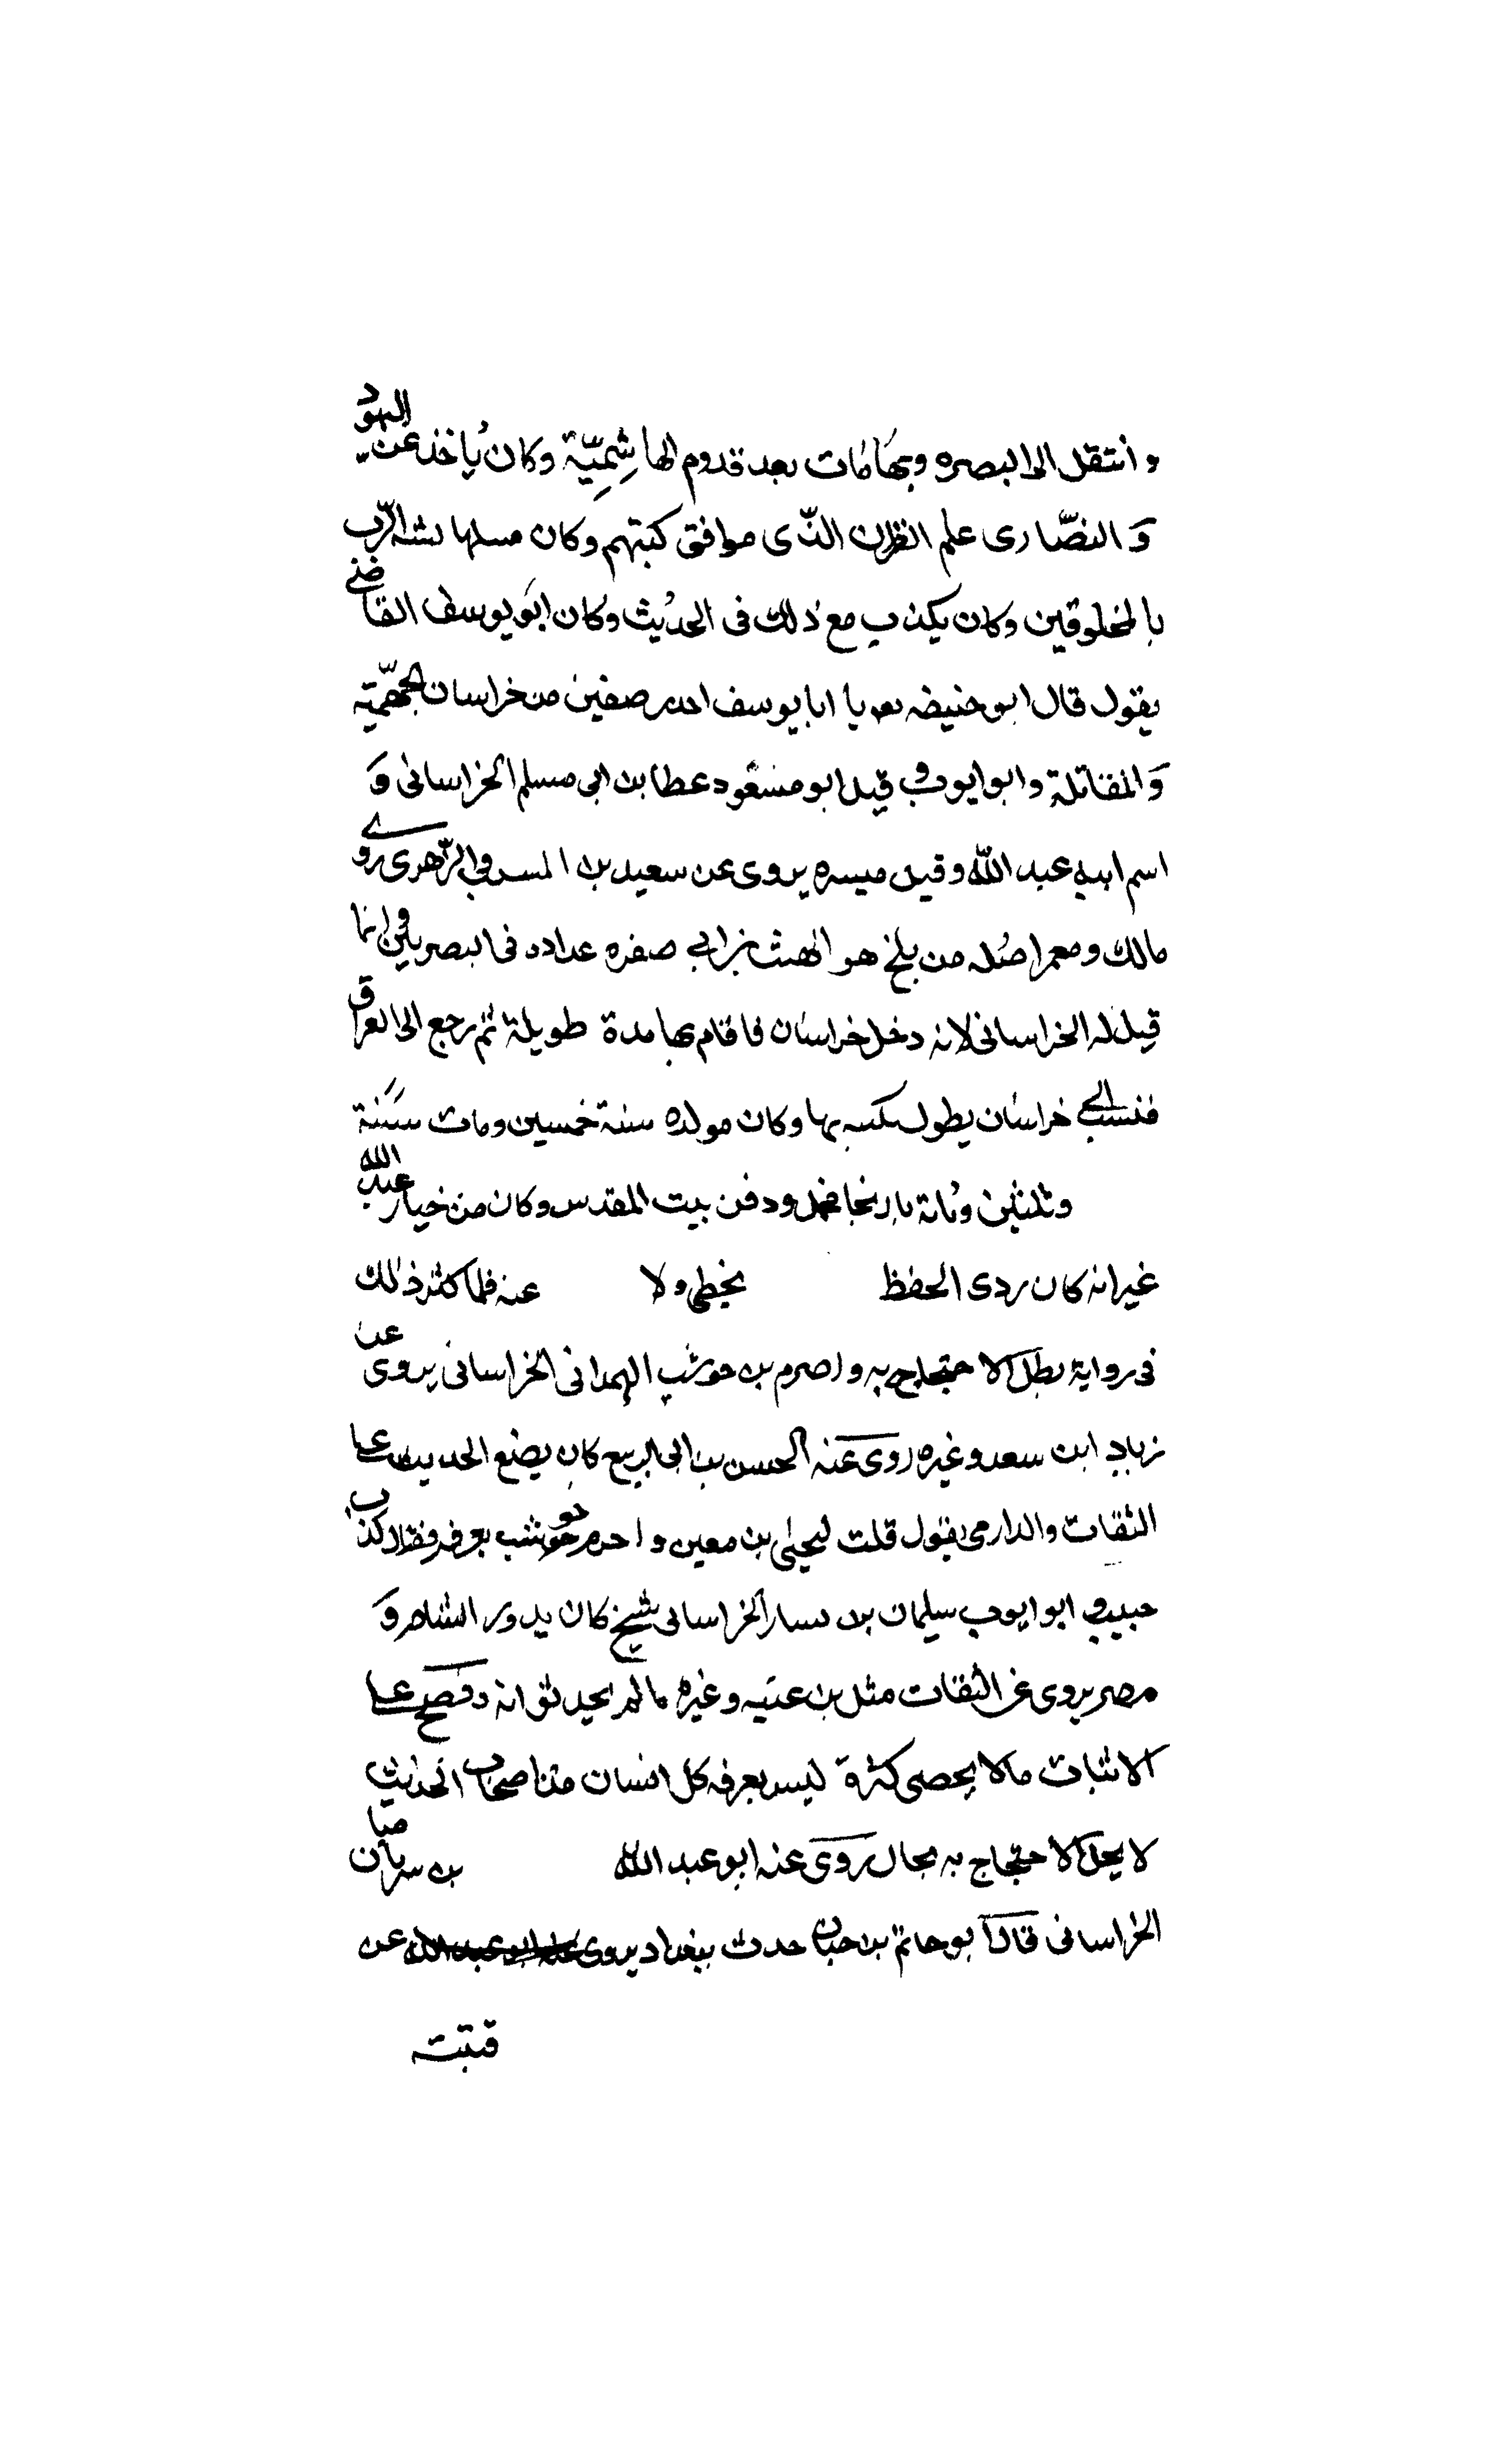 وانتقل الى البصره وبها مات بعد قدوم الهاشِمِيّة وكان يُاخذ عن اليهود
وَ النصّارى علم القران الذّى موافق كتبهم وكان مسلما يشبه الرّب
بالمخلوقين وكان يكذب مع ذلك فى الحديث وكان ابو يوسف القاضى
يقول قال ابو حنيفه يا ابا يوسف احذر صنفين من خراسان الجهميّة
وَالمقاتلة وابو ايوب و قيل ابو مسعود عطا بن ابى مسلم الخراسانى وَ
اسم ابيه عبد الله وقيل ميسره يروى عن سعيد بن المسيب والزّهرى روى
مالك ومعمر اصله من بلخ هو الى المهلب بن ابى صفره عداده فى البصريين وانما
قيل له الخراسانى لانه دخل خراسان فاقام بها مدة طويلة ثم رجع الى العراق
فنسب الى خراسان بطول مكثه بها وكان مولده سنة خمسين ومات سَنَة
وثلثين ومائة باريحا فحمل ودفن بيت المقدس وكان من خيار عبد الله
غير انه كان ردى الحفظ يخطى ولا عنه فلما كثر ذلك
فى رواية بطل الاحتجاج به واصرم بن حوشب الهمدانى الخراسانى يروى عن
زياد ابن سعد وغيره روى عنه الحسن بن ابى الربيع كان يضع الحديث على
الثقات والدارمى يقول قلت ليحيى بن معين واصرم بن حوشب يعرفه فقال كذاب
خبيث و ابو ايوب سليمان بن يسار الخراسانى شيخ كان يدور الشام وَ
مصر يروى عن الثقات مثل بن عيينه وغيره ما لم يحدثوا به ويضع على
الاثبات ما لا يحصى كثرة ليس يعرفه كل انسان من اصحاب الحديث
لا يحل الاحتجاج به بحال روى عنه ابو عبد الله بن سريان
الخراسانى قال ابو حاتم بن حبان حدث ببغداد يروى عن
قتيبة